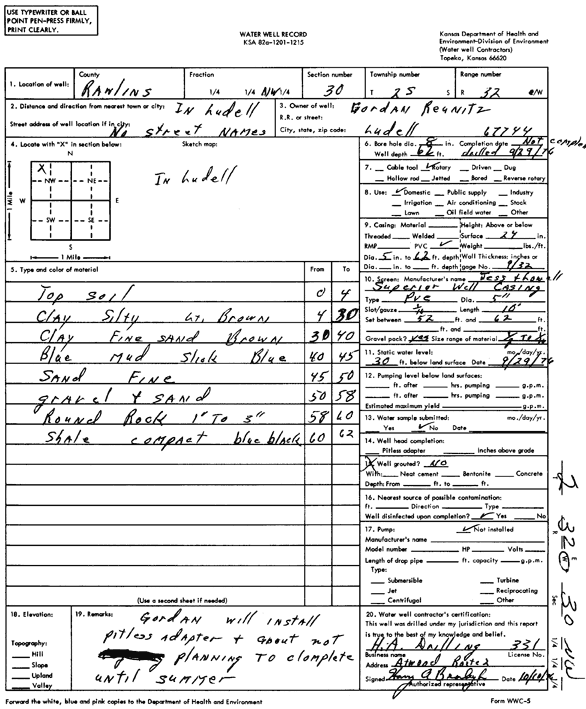 USE TYPEWRITER OR BALL
POINT PEN-PRESS FIRMLY,
PRINT CLEARLY.
WATER WELL RECORD
KSA 82a-1201-1215
Kansas Department of Health and
Environment-Division of Environment
(Water well Contractors)
Topeka, Kansas 66620
1. Location of well: County Rawlins Fraction 1/4 1/4 NW 1/4 Section number 30 Township number T 2S S Range number R 32 E/W
2. Distance and direction from nearest town or city: In Ludell
Street address of well location if in city: No street NAMES
3. Owner of well: Gordan Reunitz
R.R. or street:
City, state, zip code: Ludell 67744
4. Locate with "X" in section below: Sketch map:
N
X
NW NE
W E
SW SE
S
1 Mile
1 Mile
In Ludell
6. Bore hole dia. 8 in. Completion date Not complete
Well depth 62 ft. drilled 9/29/76
7. Cable tool ✓ Rotary Driven Dug
Hollow rod Jetted Bored Reverse rotary
8. Use: ✓ Domestic Public supply Industry
Irrigation Air conditioning Stock
Lawn Oil field water Other
9. Casing: Material Height: Above or below
Threaded Welded Surface 24 in.
RMP PVC ✓ Weight lbs./ft.
Dia. 5 in. to 62 ft. depth Wall Thickness: inches or
Dia. in. to ft. depth gage No. 9/32
10. Screen: Manufacturer's name Jess thomas
Superior Well Casing
Type Pvc Dia. 5"
Slot/gauze Length 10'
Set between 52 ft. and 62 ft.
ft. and ft.
Gravel pack? yes Size range of material
11. Static water level: mo./day/yr.
30 ft. below land surface Date 9/29/76
12. Pumping level below land surfaces:
ft. after hrs. pumping g.p.m.
ft. after hrs. pumping g.p.m.
Estimated maximum yield g.p.m.
13. Water sample submitted: mo./day/yr.
Yes ✓ No Date
14. Well head completion:
Pitless adapter Inches above grade
15. Well grouted? NO
With: Neat cement Bentonite Concrete
Depth: From ft. to ft.
16. Nearest source of possible contamination:
ft. Direction Type
Well disinfected upon completion? ✓ Yes No
17. Pump: ✓ Not installed
Manufacturer's name
Model number HP Volts
Length of drop pipe ft. capacity g.p.m.
Type:
Submersible Turbine
Jet Reciprocating
Centrifugal Other
5. Type and color of material From To
Top soil 0 4
Clay Silty Lt. Brown 4 30
Clay Fine sand Brown 30 40
Blue Mud Slick Blue 40 45
SAND Fine 45 50
gravel + SAND 50 58
Round Rock 1" To 3" 58 60
Shale compact blue black 60 62
(Use a second sheet if needed)
18. Elevation:
Topography:
Hill
Slope
Upland
Valley
19. Remarks: Gordan will install
pitless adapter + about not
planning to complete
until summer
20. Water well contractor's certification:
This well was drilled under my jurisdiction and this report
is true to the best of my knowledge and belief.
H.A. Drilling 331
Business name License No.
Address Atwood Route 2
Signed Date
Authorized representative
2
32 E W
R
30
Sec
NW
1/4 1/4 1/4
Forward the white, blue and pink copies to the Department of Health and Environment
Form WWC-5